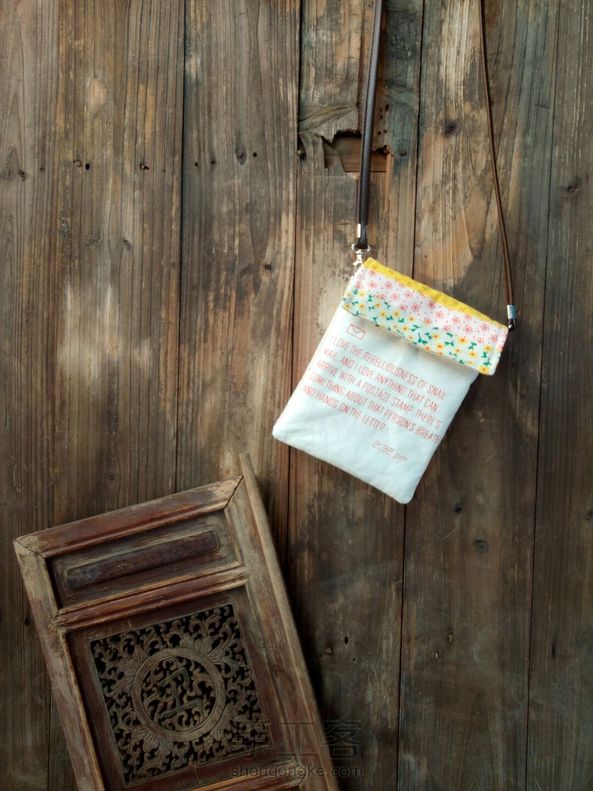 I LOVE THE REBELLIOUSNESS OF SNAIL
MAIL. AND I LOVE ANYTHING THAT CAN
ARRIVE WITH A POSTAGE STAMP. THERE'S
SOMETHING ABOUT THAT PERSON'S BREATH
AND HANDS ON THE LETTER.
2:32 pm
手工客
shougongke.com